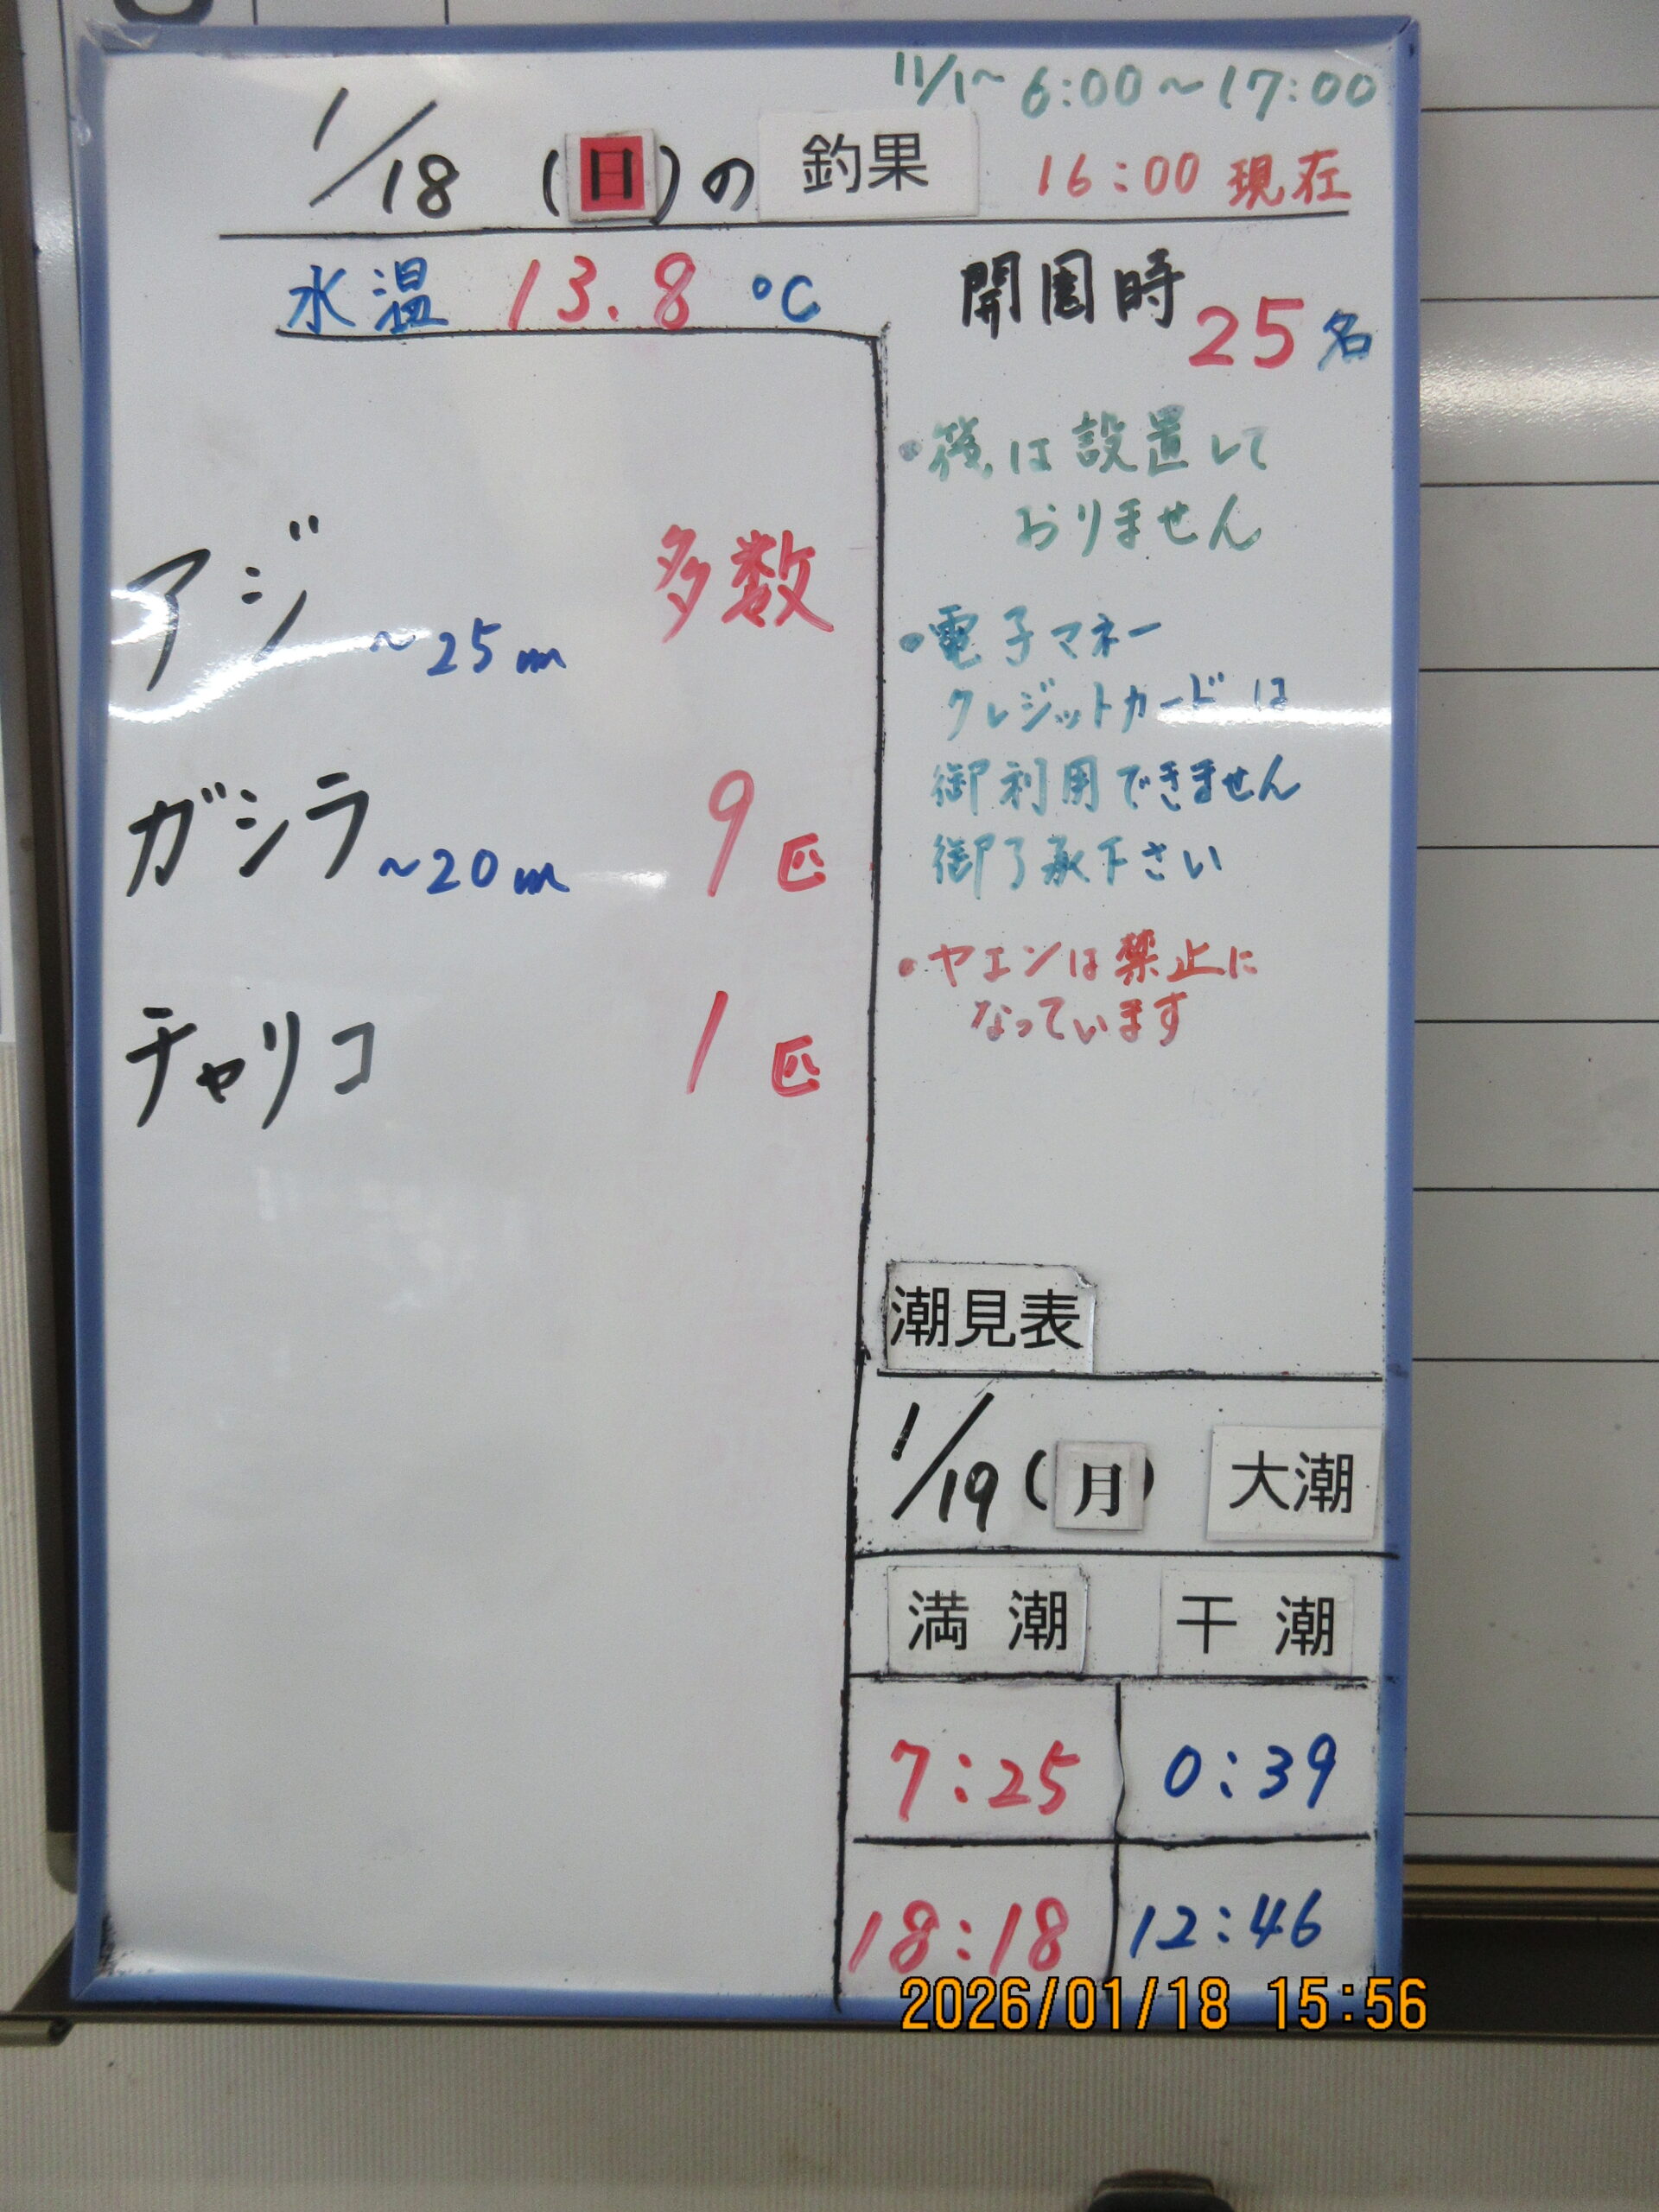 11/1~ 6:00~17:00
1/18 (日)の 釣果 16:00 現在
水温 13.8 ℃
開園時 25名
アジ ~25cm 多数
ガシラ ~20cm 9匹
チャリコ 1匹
・筏は設置して
おりません
・電子マネー
クレジットカードは
御利用できません
御了承下さい
・ヤエンは禁止に
なっています
潮見表
1/19 (月) 大潮
満潮 干潮
7:25 0:39
18:18 12:46
2026/01/18 15:56